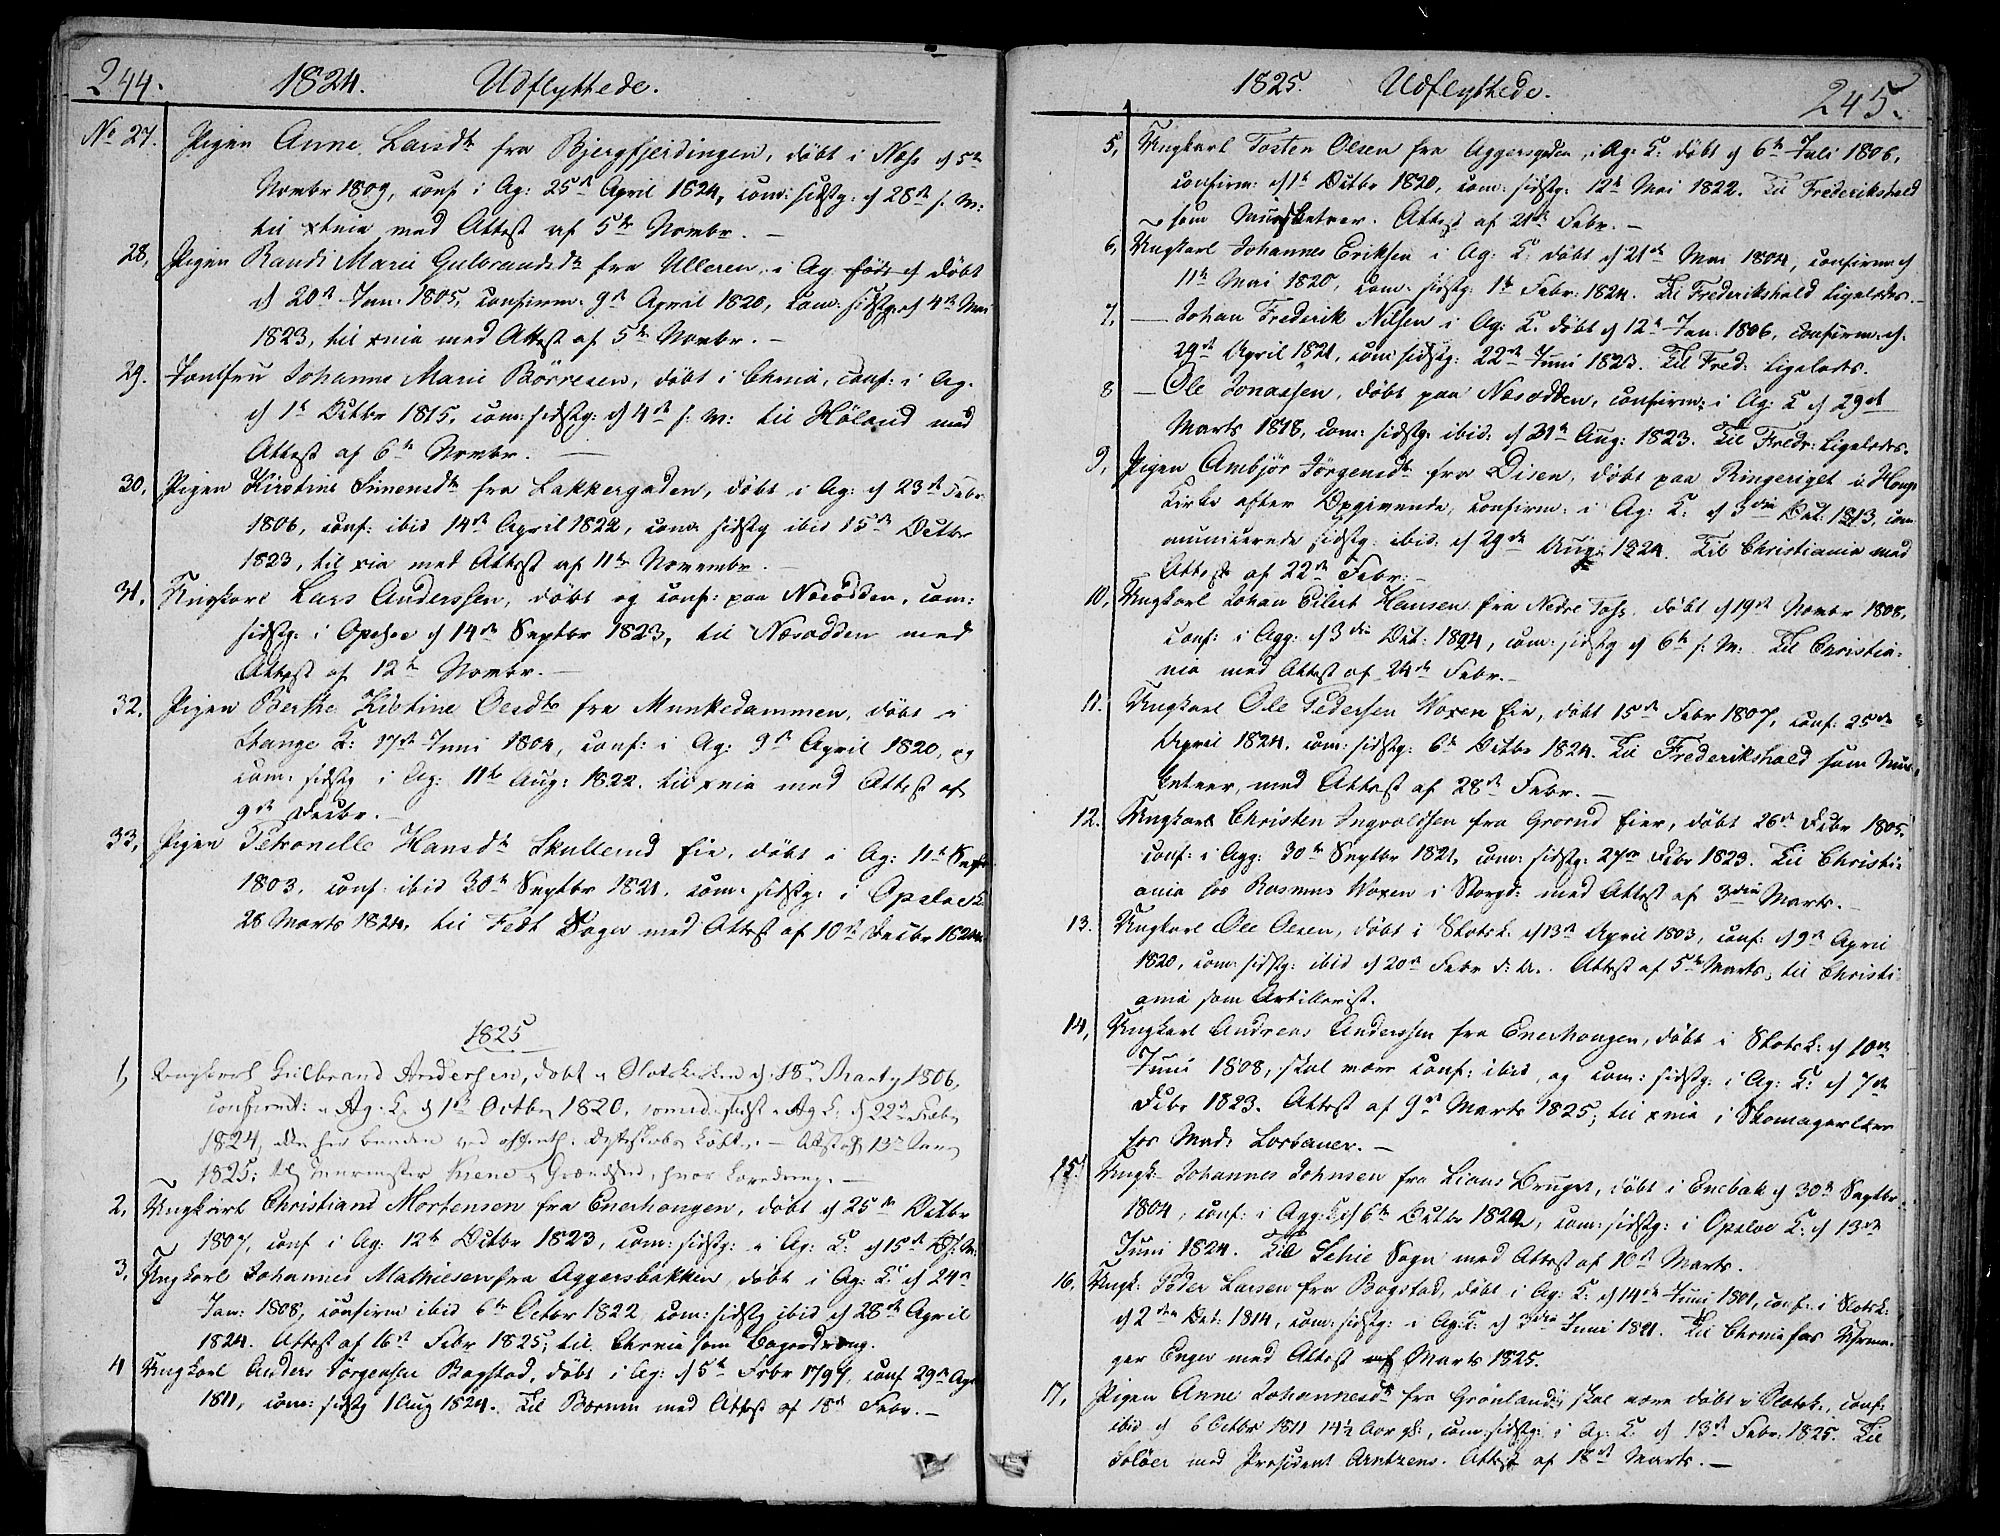 244. 1824. Udflyttede.
No 27. Pigen Anne Larsdtr fra Bjergfjerdingen, døbt i Næss d 5te
Novbr 1809, conf i Ag: 25de April 1824, com: sidstg: d 28de s. M:
til xtnia med Attest af 5te Novbr. –
28, Pigen Randi Marie Gulbrandsdtr fra Ulleren, i Ag: døbt
d 20de Jan: 1805, confirm: 9de April 1820, com: sidstg d 4de Mai
1823, til xnia med Attest af 5te Novbr. –
29. Johanne Marie Börresen, døbt i Chrnia, conf: i Ag.
d 1te Octbr 1815, com: sidstg: d 4de s. M: til Höland med
Attest af 6te Novbr. –
30, Pigen Kirstine Simensdtr fra Lakkergaden, døbt i Ag: d 23de Febr
1806, conf: ibid 14de April 1822, com: sidstg ibid 15de Octbr
1823, til xia med Attest af 11te Novembr. –
31, Ungkarl Lars Anderssen, døbt og conf: paa Næsodden, com:
sidstg: i Opsloe d 14de Septbr 1823, til Næsodden med
Attest af 12te Novbr. –
32, Pigen Berthe Kirstine Olesdtr fra Munkedammen, døbt i
Stange K: 17de Juni 1804, conf: i Ag: 9de April 1820, og
com: sidstg i Ag: 11te Aug: 1822. til xnia med Attest af
9de Decbr. –
33, Pigen Petronelle Hansdtr Skullerud Eie, døbt i Ag: 11te Sept
1803, conf: ibid 30te Septbr 1821, com: sidstg: i Opsloe K.
28 Marts 1824, til Fedt Sogn med Attest af 10de Decbr 1824.
1825
1, Ungkarl Gulbrand Andersen, døbt i Slotskirken d. 18de Marty 1806,
confirmt: i Ag. K. d 1te Octbr 1820, comed: sidst i Ag K. d 22de Febr
1824, Attest af 13de Jan
1825;
2, Ungkarl Christians Mortensen fra Enerhougen, døbt d 25de Octbr
1807, conf i Ag: 12te Octbr 1823, com: sidstg: i Ag: K: d 15de
3, Ungkarl Johannes Mathiesen fra Aggersbakken, døbt i Ag: K: d 24de
Jan: 1808, confirm ibid 6te Octbr 1822, com: sidstg ibid d 28de April
1824. Attest af 16de Febr 1825; til Chrnia som Bagerdreng.
4 Ungkarl Anders Jörgensen Bogstad, døbt i Ag: d 5te Febr 1797, conf 29de Apr
1811, com: sidstg 1 Aug 1824. Til Bærum med Attest af 18de Febr. –
1825. Udflyttede. 245.
5, Ungkarl Tosten Olsen fra Aggersgaden, i Ag: K: døbt d 6te Juli 1806,
confirm: d 1te Octbr 1820, com: sidstg: 12te Mai 1822. Til Frederikshald
som Musketeer. Attest af 21de Febr. –
6, Ungkarl Johannes Eriksen i Ag: K: døbt d 21de Mai 1804, confirm: d
11te Mai 1820, com: sidstg: 1te Febr: 1824. Til Frederikshald ligeledes. –
7, – Johan Frederik Nilsen i Ag: K. døbt d 12te Jan: 1806, confirm: d.
29de April 1821, com: sidstg: 22de Juni 1823. Til Fred: ligeledes.
8 – Ole Jonassen, døbt paa Næsodden, confirm: i Ag: K d 29de
Marts 1818, com: sidstg: ibid: d 31te Aug: 1823. Til Fredr: ligeledes.
9, Pigen Ambjør Jørgensdtr fra Disen, døbt paa Ringeriget i
Kirke efter Opgivende, confirm: i Ag: K: d 3die Oct: 1813, com:
municerede sidstg: ibid: d 29de Aug: 1824. Til Christiania med
Attest af 22de Febr: –
10, Ungkarl Johan Eilert Hansen fra Nedre Foss. døbt d 19de Novbr 1808,
conf: i Agg: d 3die Oct: 1824, com: sidstg d 6te s. M: Til Christia-
nia med Attest af 24de Febr. –
11. Ungkarl Ole Pedersen Voxen Eie, døbt 15de Febr 1807, conf: 25de
April 1824, com: sidstg: 6te Octbr 1824. Til Frederikshald som Mus-
keteer, med Attest af 28de Febr. –
12. Ungkarl Christen Ingvoldsen fra Grorud Eier, døbt 26de Decbr 1805,
conf: i Agg: 30te Septbr 1821, com: sidstg: 27de Decbr 1823. Til Christi-
ania hos Rasmus Voxen i Storgd: med Attest af 3die Marts. –
13. Ungkarl Ole Olsen, døbt i Slotsk. d 13de April 1803, conf: d 9de April
1820, com: sidstg: ibid d 20de Febr d: A. Attest af 5te Marts, til Christi-
ania som Artillerist.
14, Ungkarl Andreas Anderssen fra Enerhougen, døbt i Slotsk: d 10de
Juni 1808, skal være conf: ibid, og com: sidstg: i Ag: K: d 7de
Decbr 1823. Attest af 9de Marts 1825; til xnia i Skomagerlære
hos Mad: Lorbauer. –
15. Ungk: Johannes Johnsen fra Lians Bruget, døbt i Enebak d 30te Septbr
1804, conf: i Agg: K d 6te Octbr 1822, com: sidstg: i Opsloe K: d 13de
Juni 1824. Til Schie Sogn med Attest af 10de Marts.
16, Ungk: Peder Larsen fra Bogstad, døbt i Ag: K: d 14de Juni 1801, conf: i Slotsk:
d 2den Oct: 1814, com: sidstg: i Ag: K: d 3die Juni 1821. Til Chrnia hos
ger Enger med Attest af Marts 1825.
17, Pigen Anne Johannesdtr fra Grönland, skal være døbt i Slotsk., conf:
ibid d 6 Octbr 1811 14½ Aar gl:, com: sidstg: i Ag: K: d 13de Febr: 1825. Til
Soløer med Præsident Arntzens. Attest af 18de Marts. –